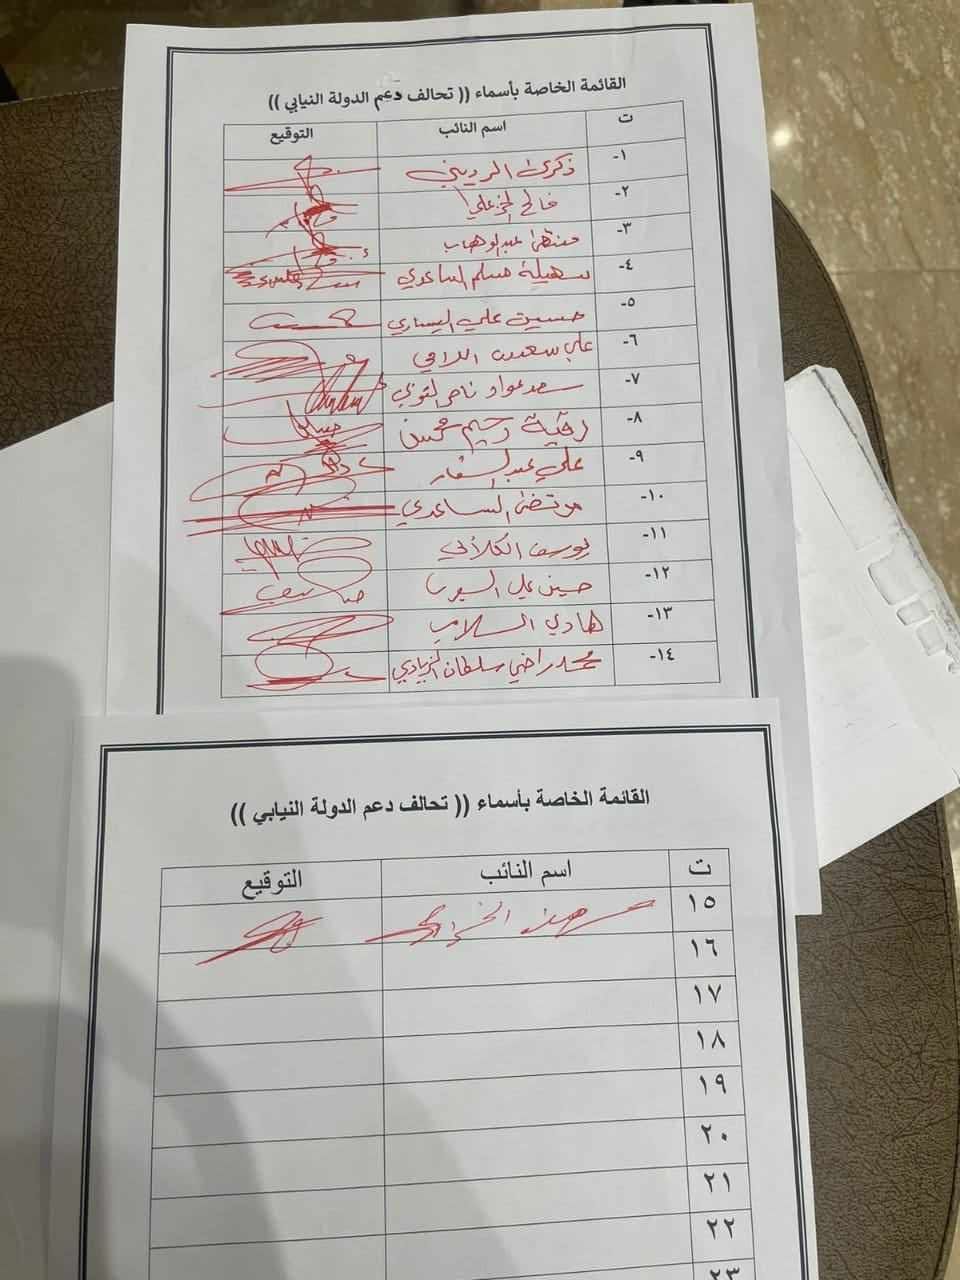 القائمة الخاصة بأسماء (( تحالف دعم الدولة النيابي ))
ت اسم النائب التوقيع
١- ذكرى الرديني
٢- فالح الخزعلي
٣- عبد الوهاب
٤- سهيلة مسلم الساعدي
٥- حسين علي اليساري
٦- علي سعدون اللامي
٧- سعد عواد ناصر التوبي
٨- رقية رحيم محسن
٩- علي عبد الستار
١٠- مرتضى الساعدي
١١- يوسف الكلابي
١٢- حسين علي
١٣- هادي السلامي
١٤- محمد راضي سلطان الزيادي
القائمة الخاصة بأسماء (( تحالف دعم الدولة النيابي ))
ت اسم النائب التوقيع
١٥ مهند الخزرجي
١٦
١٧
١٨
١٩
٢٠
٢١
٢٢
٢٣